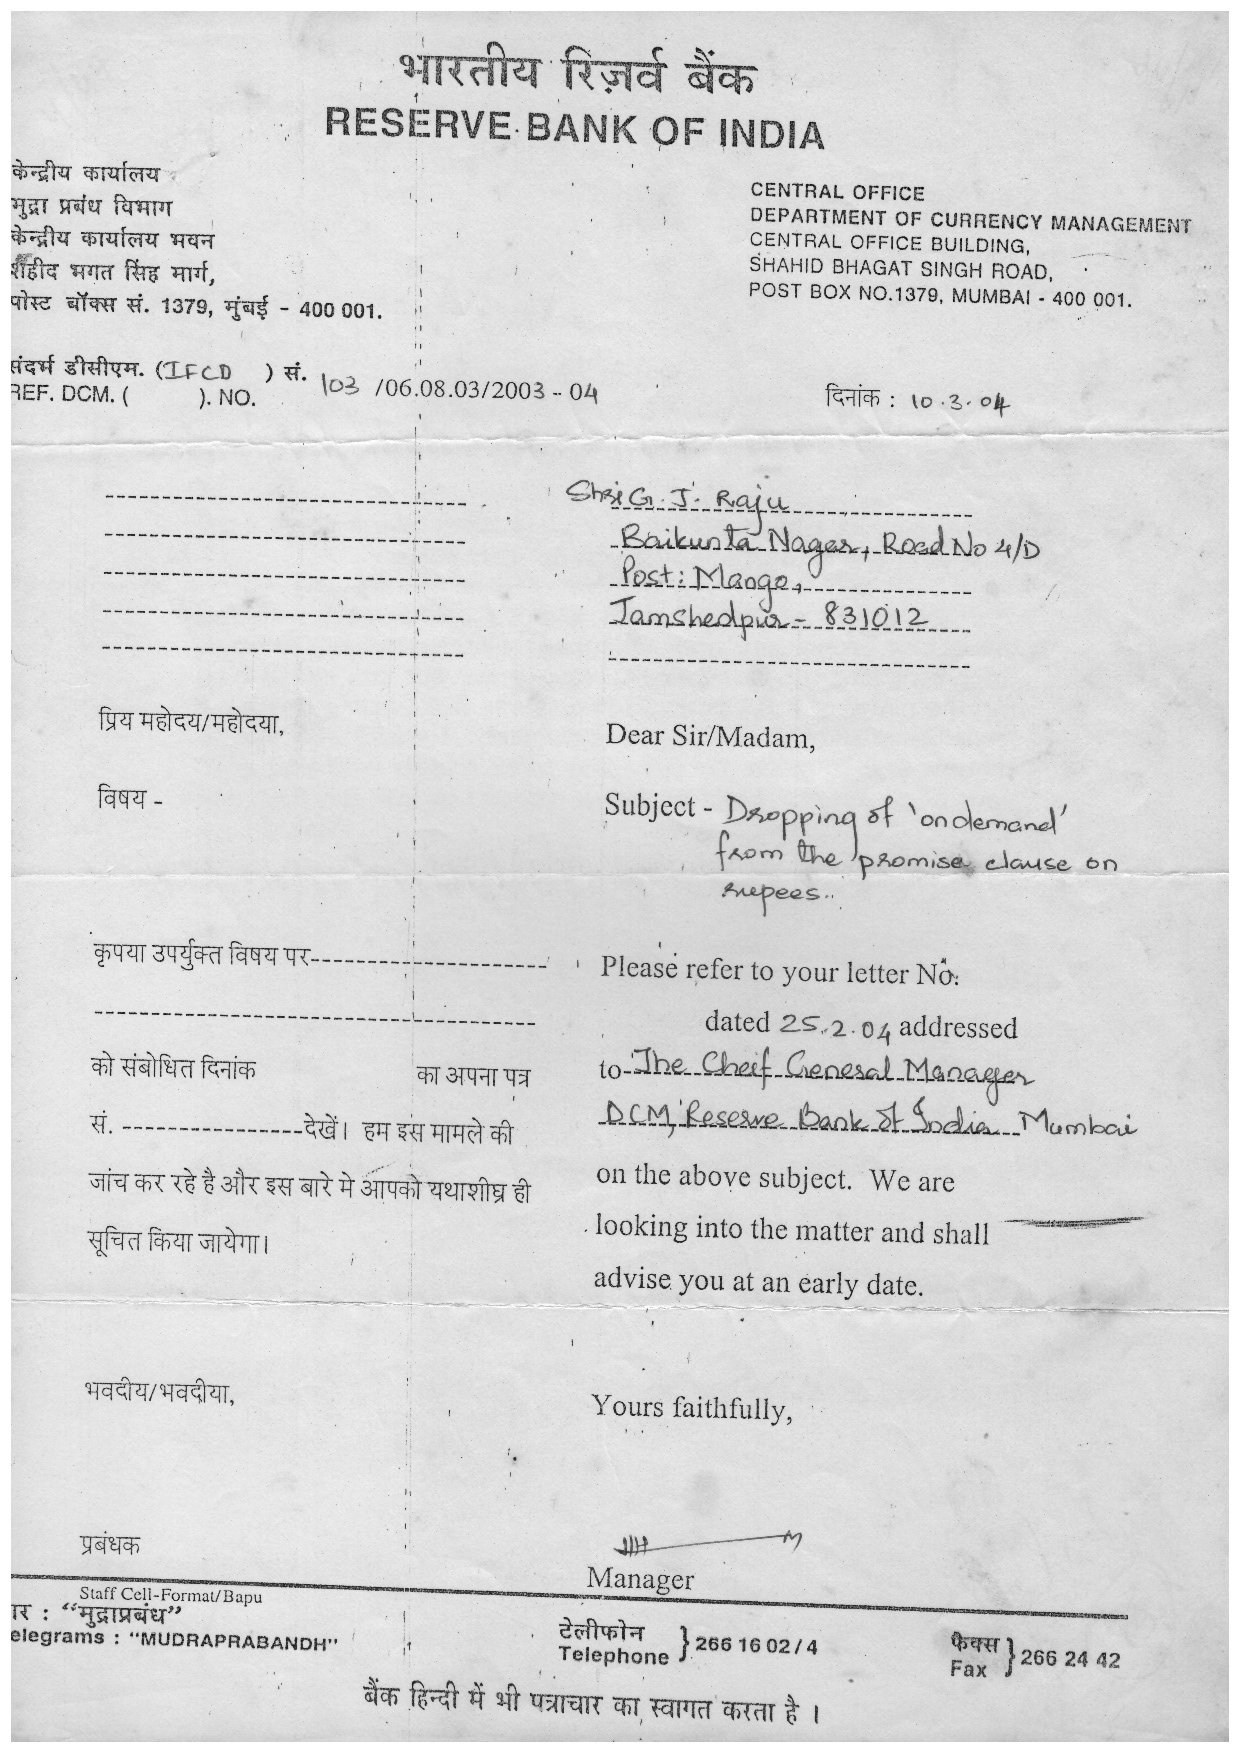 भारतीय रिज़र्व बैंक
RESERVE BANK OF INDIA
केन्द्रीय कार्यालय
मुद्रा प्रबंध विभाग
केन्द्रीय कार्यालय भवन
शहीद भगत सिंह मार्ग,
पोस्ट बॉक्स सं. 1379, मुंबई - 400 001.
CENTRAL OFFICE
DEPARTMENT OF CURRENCY MANAGEMENT
CENTRAL OFFICE BUILDING,
SHAHID BHAGAT SINGH ROAD,
POST BOX NO.1379, MUMBAI - 400 001.
संदर्भ डीसीएम. (IFCD ) सं.
REF. DCM. ( ). NO. 103 /06.08.03/2003 - 04
दिनांक : 10.3.04
Shri G. J. Raju
Baikunta Nagar, Road No 4/D
Post: Mango,
Jamshedpur - 831012
प्रिय महोदय/महोदया,
विषय -
कृपया उपर्युक्त विषय पर--------------------
------------------------------------
को संबोधित दिनांक का अपना पत्र
सं. ----------------देखें। हम इस मामले की
जांच कर रहे है और इस बारे मे आपको यथाशीघ्र ही
सूचित किया जायेगा।
भवदीय/भवदीया,
प्रबंधक
Dear Sir/Madam,
Subject - Dropping of 'on demand'
from the promise clause on
rupees..
Please refer to your letter No.
dated 25.2.04 addressed
to The Cheif General Manager
DCM, Reserve Bank of India Mumbai
on the above subject. We are
looking into the matter and shall
advise you at an early date.
Yours faithfully,
Manager
Staff Cell-Format/Bapu
ार : “मुद्राप्रबंध”
elegrams : “MUDRAPRABANDH”
टेलीफोन
Telephone } 266 16 02 / 4
फैक्स
Fax } 266 24 42
बैंक हिन्दी में भी पत्राचार का स्वागत करता है ।